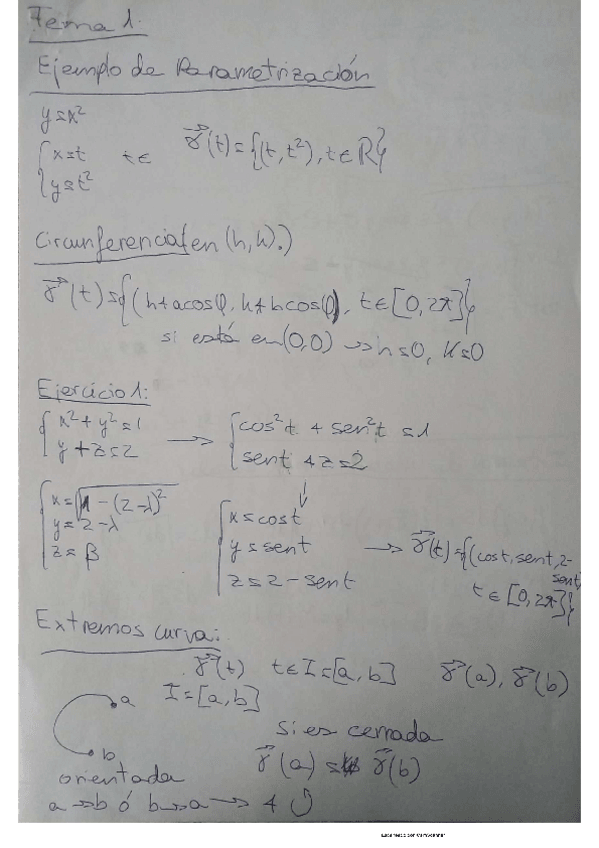 Tema 1:
Ejemplo de Parametrización
y=x²
{ x=t t∈ γ⃗(t)={(t, t²), t∈ℝ}
{ y=t²
Circunferencia (en (h,k).)
γ⃗(t)={(h+acosφ, k+bcosφ), t∈[0,2π]}
si está en (0,0) → h=0, k=0
Ejercicio 1:
{ x²+y²=1 → { cos²t + sen²t =1
{ y+z=2 { sent +z=2
↓
{ x=√1-(2-λ)² { x=cost
{ y=2-λ { y=sent → γ⃗(t)={(cost, sent, 2-sent)
{ z=β { z=2-sent t∈[0,2π]}
Extremos curva:
γ⃗(t) t∈I=[a,b] γ⃗(a), γ⃗(b)
a I=[a,b]
si es cerrada
b γ⃗(a) = γ⃗(b)
orientada
a→b ó b→a →